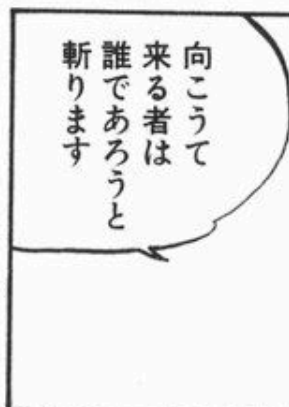 向こうて
来る者は
誰であろうと
斬ります